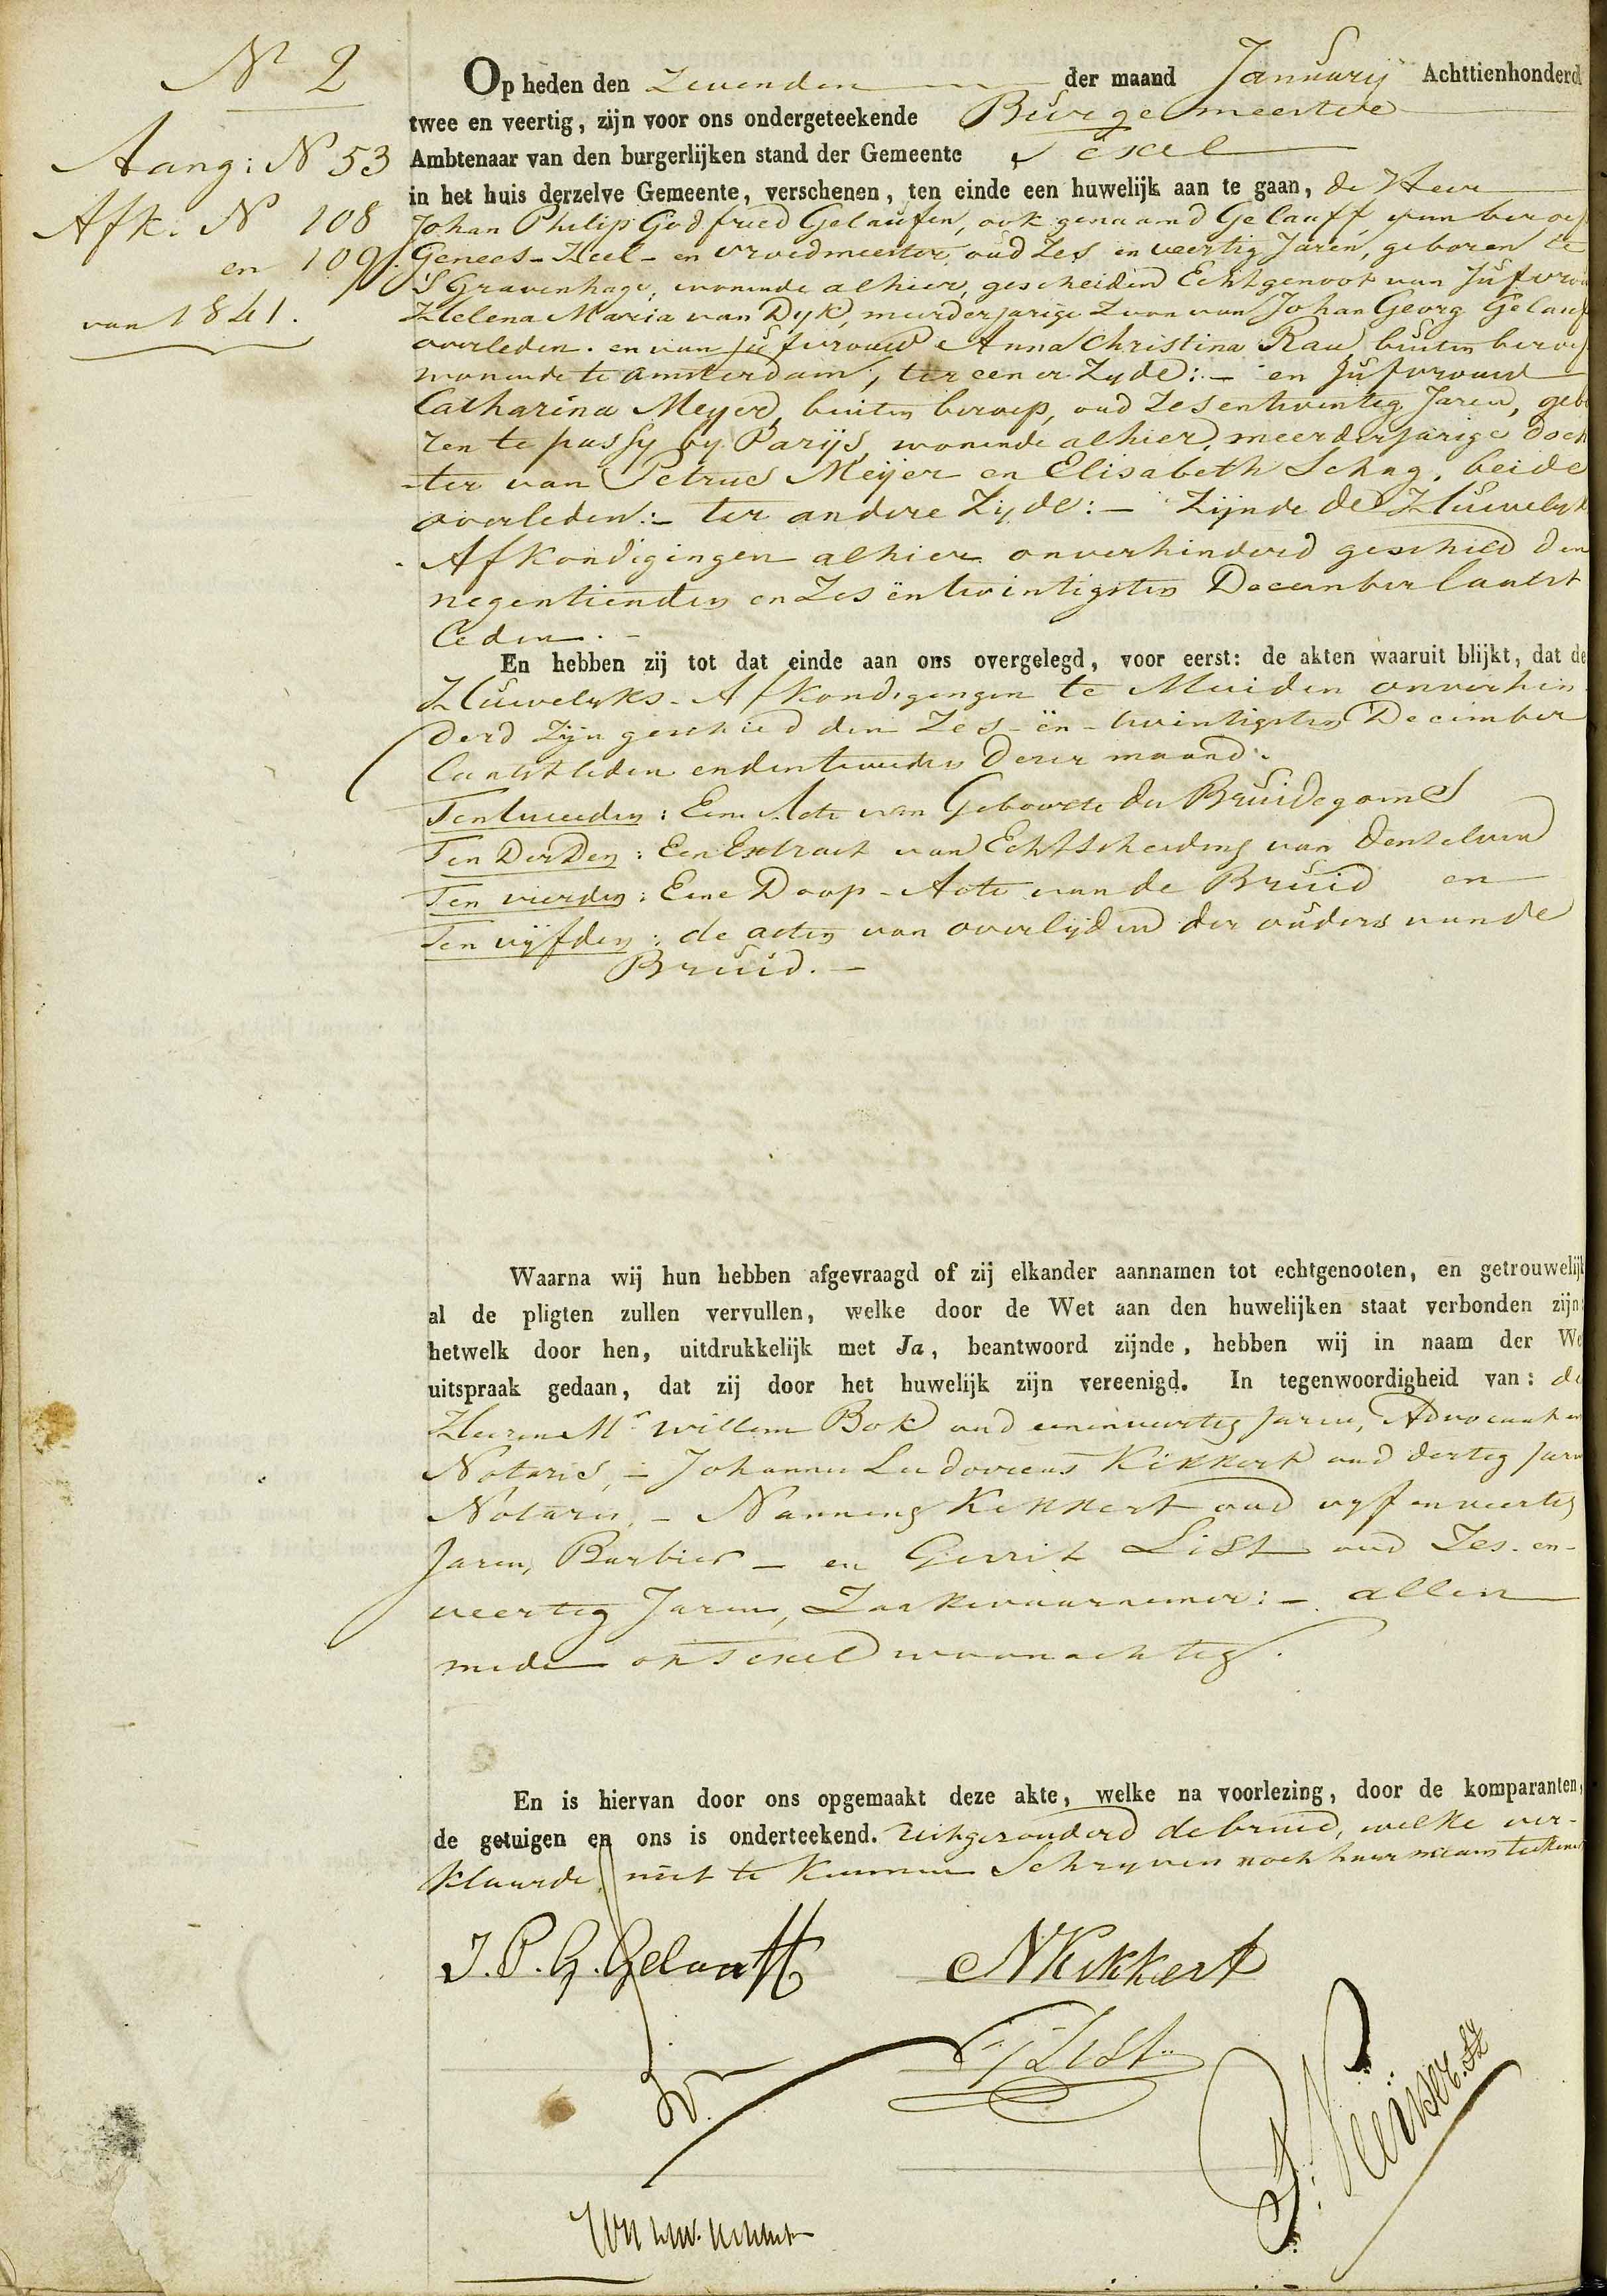 Nº 2
Aang: N 53
Afk: N 108
en 109.
van 1841.
Op heden den Zevenden der maand Januarij Achttienhonderd
twee en veertig, zijn voor ons ondergeteekende Burgemeester
Ambtenaar van den burgerlijken stand der Gemeente Texel
in het huis derzelve Gemeente, verschenen, ten einde een huwelijk aan te gaan, de Heer
Johan Philip Godfried Gelaufen, ook genaamd Gelauff, van beroep
Genees- Heel- en vroedmeester, oud Zes en veertig Jaren, geboren te
S'Gravenhage, wonende alhier, gescheiden Echtgenoot van Jufvrou
Helena Maria van Dyk, meerderjarige Zoon van Johan Georg Gelauf
overleden. en van Jufvrouw Anna Christina Rau buiten beroep
wonende te amsterdam, ter eener Zyde:- en Jufvrouw
Catharina Meyer, buiten beroep, oud Zes entwintig Jaren, gebo
ren te passy by Parijs, wonende alhier, meerderjarige doch
-ter van Petrus Meijer en Elisabeth Schag, beide
overleden:- ter andere Zijde:- Zijnde de Huwelyks
Afkondigingen alhier onverhinderd geschied den
negentienden en Zes ën twintigsten December laatst
leden.-
En hebben zij tot dat einde aan ons overgelegd, voor eerst: de akten waaruit blijkt, dat de
Huwelyks-Afkondigingen te Muiden onverhin
derd Zijn geschied den Zes-ën-twintigsten December
laatstleden en den tweeden dezer maand.
Ten tweeden: Een Acte van Geboorte des Bruidegoms
Ten Derden: Een Extract van Echtscheiding van denzelven
Ten vierden: Eene Doop-Acte van de Bruid en
Ten vijfden: de acten van overlijden der ouders van de
Bruid.-
Waarna wij hun hebben afgevraagd of zij elkander aannamen tot echtgenooten, en getrouwelijk
al de pligten zullen vervullen, welke door de Wet aan den huwelijken staat verbonden zijn:
hetwelk door hen, uitdrukkelijk met Ja, beantwoord zijnde, hebben wij in naam der We
uitspraak gedaan, dat zij door het huwelijk zijn vereenigd. In tegenwoordigheid van: de
Heeren Mr willem Bok oud eenenveertig Jaren, Advocaat en
Notaris,- Johannes Ludovicus Kikkert oud dertig Jaren
Notaris,- Nanning Kikkert oud vyf en veertig
Jaren, Barbier - en Gerrit List oud Zes-en-
veertig Jaren, Zaakwaarnemer:- allen
mede op Texel woonachtig.
En is hiervan door ons opgemaakt deze akte, welke na voorlezing, door de komparanten,
de getuigen en ons is onderteekend. Uitgezonderd de bruid, welke ver-
klaarde, niet te kunnen Schryven noch haar naam teekenen
J. P. G. Gelauff NKikkert
G List